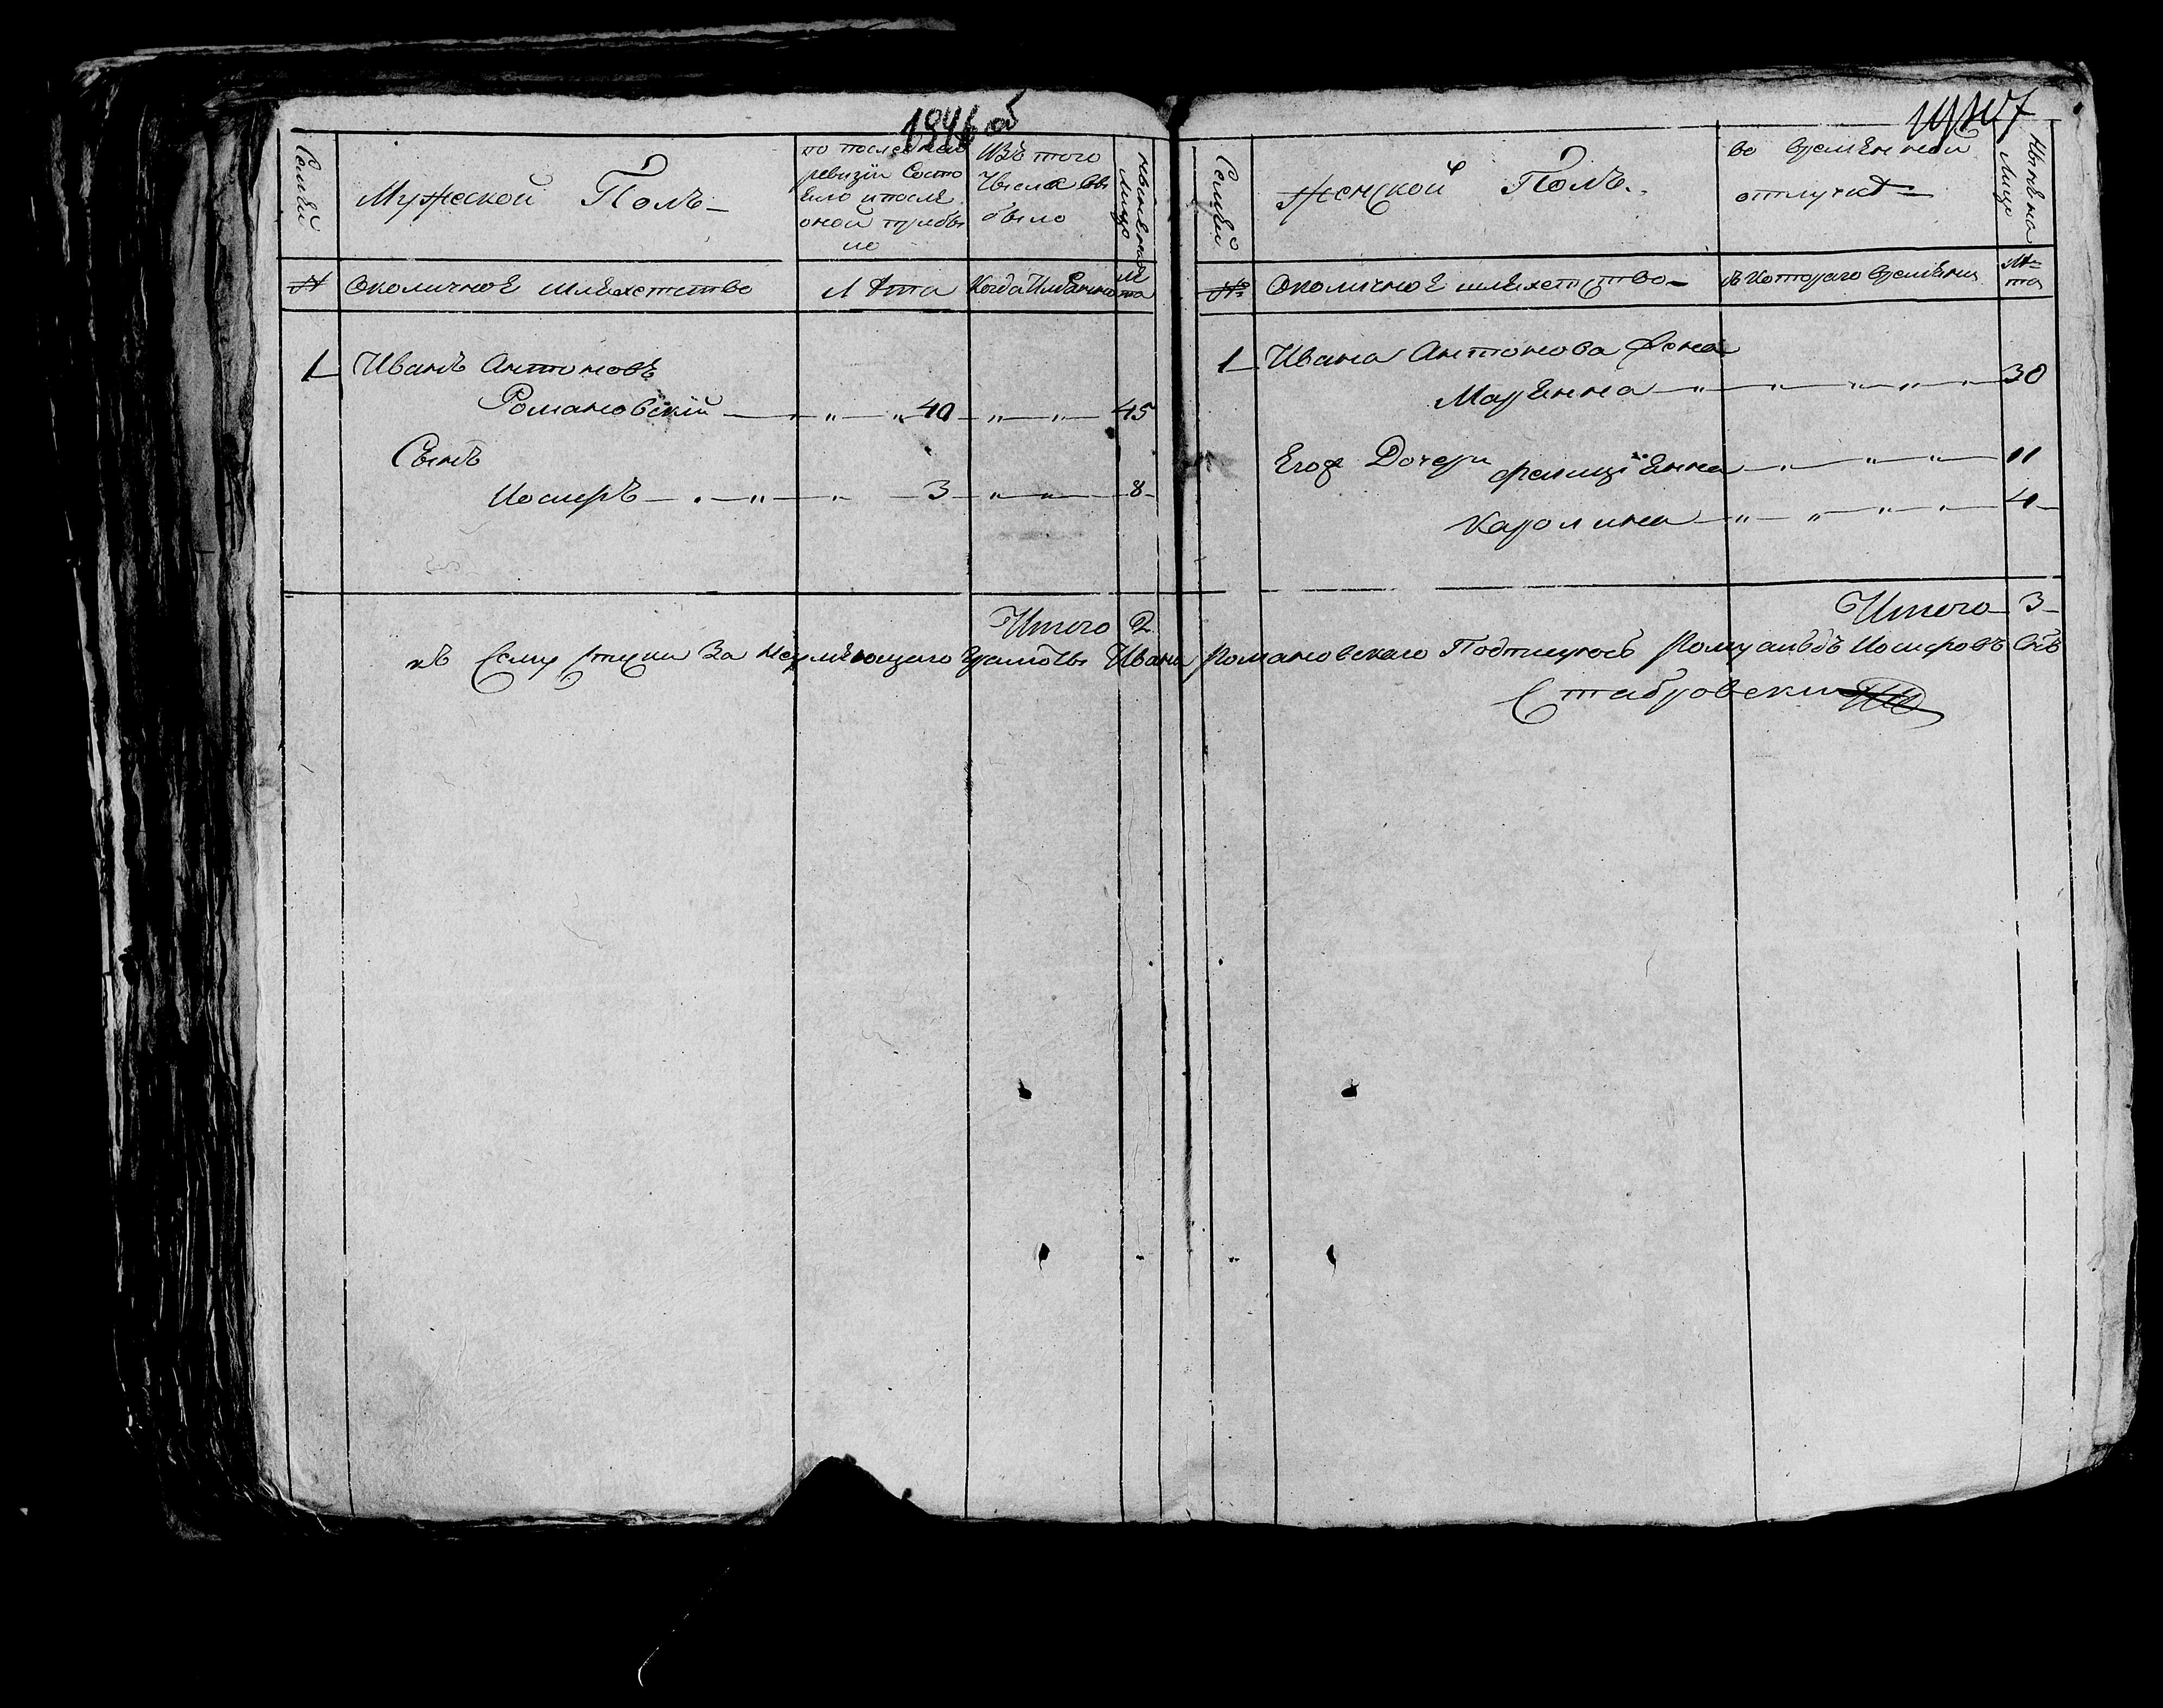 1846 об
Семьи
Мужеской Полъ
по последней
ревизіи Состо
яло и после
оной прибы
ло
Изъ того
Числа вы
было
Ныне на
Лицо
№
Околичное шляхетство
Лѣта
Когда Имянно
Лѣ
та
1
Иванъ Антоновъ
Романовскій 40 45
Сынъ
Иосифъ 3 8
Итого 2
Семьи
Женской Полъ
во временной
отлучкѣ
Ныне на
Лицо
№
Околичное шляхетство
съ Котораго времени
Лѣ
та
1
Ивана Антонова Жена
Марянна 30
Его Дочери Фелиціянна 11
Каролина 4
Итого 3
къ Сему за Неумеющаго грамоты Ивана Романовскаго Подписуюсь Ромуальдъ Иосифовъ Снъ
Стабровски